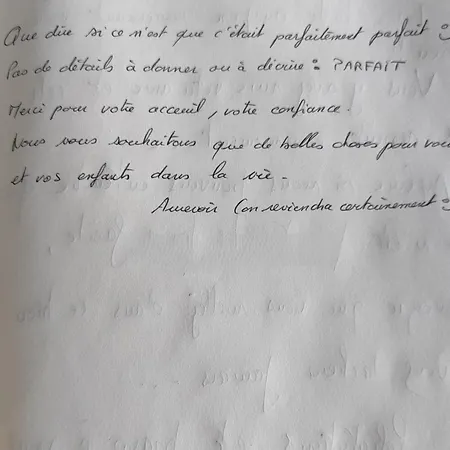 Que dire si ce n'est que c'était parfaitement parfait :)
Pas de détails à donner ou à décrire : PARFAIT
Merci pour votre acceuil, votre confiance.
Nous vous souhaitons que de belles choses pour vous
et vos enfants dans la vie.
Aurevoir (on reviendra certainement :)